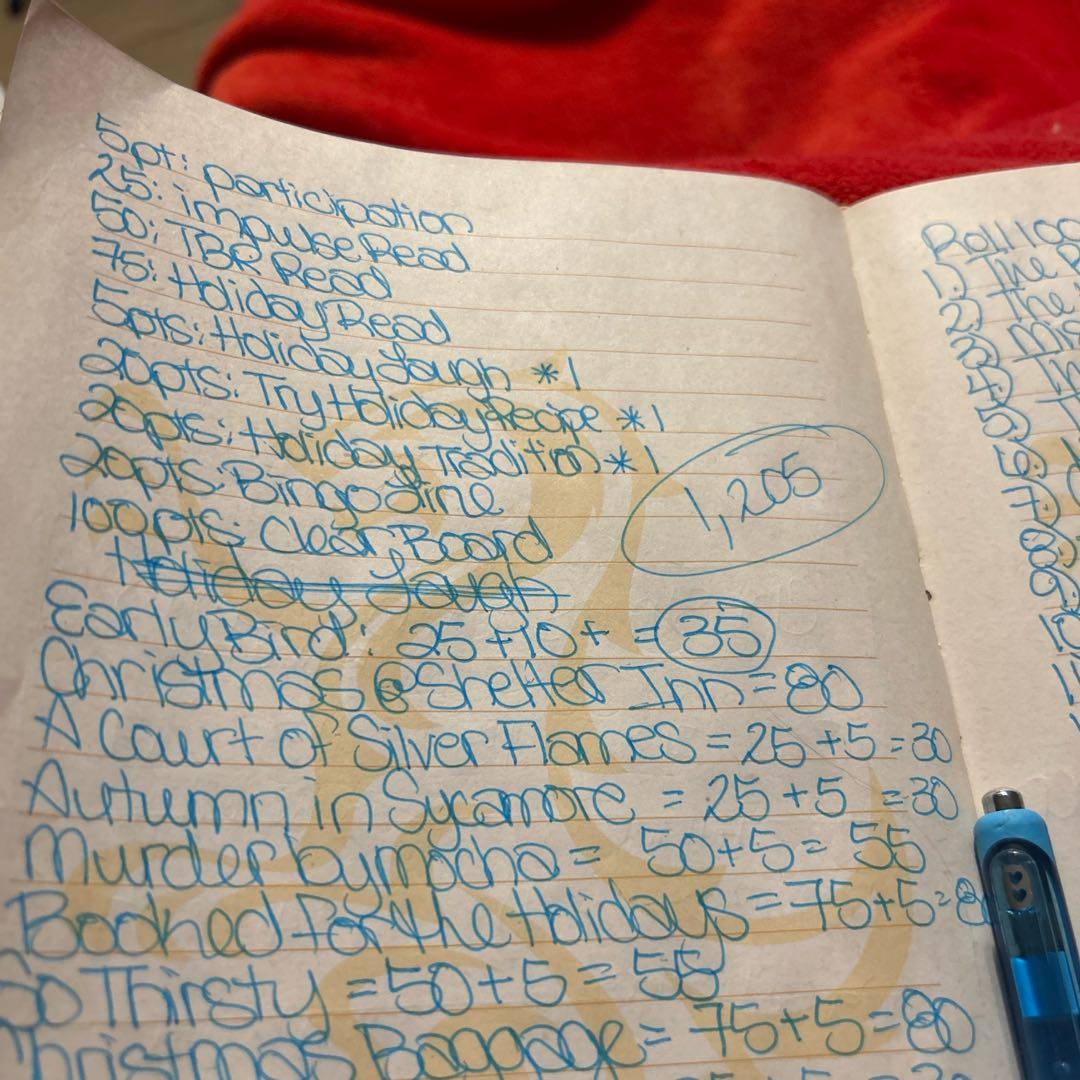 5pt: participation
25: impulse Read
50: TBR Read
75: Holiday Read
5pts: Holiday Laugh *1
20pts: Try Holiday Recipe *1
20pts: Holiday Tradition *1
20pts: Bingo Line
1,205
100pts: Clear Board
Holiday Laugh
Early Bird: 25+10+ = 35
Christmas @ Shelter Inn = 80
A Court of Silver Flames = 25+5 = 30
Autumn in Sycamore = 25+5 = 30
Murder by mocha = 50+5 = 55
Booked for the Holidays = 75+5=8
So Thirsty = 50+5 = 55
Christmas Baggage = 75+5=80
Roll 100
1.) The
2.) The
3.) Mis